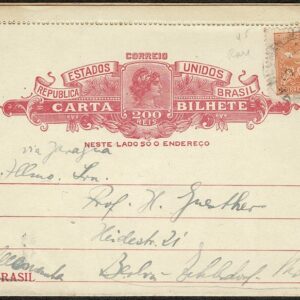 CORREIO
ESTADOS UNIDOS
REPUBLICA BRASIL
CARTA BILHETE
200
REIS
NESTE LADO SÓ O ENDEREÇO
via Jaragua
Illmo. Snr.
Prof. H. Guenther
Heidestr. 21
Berlin-Zehlendorf
BRASIL